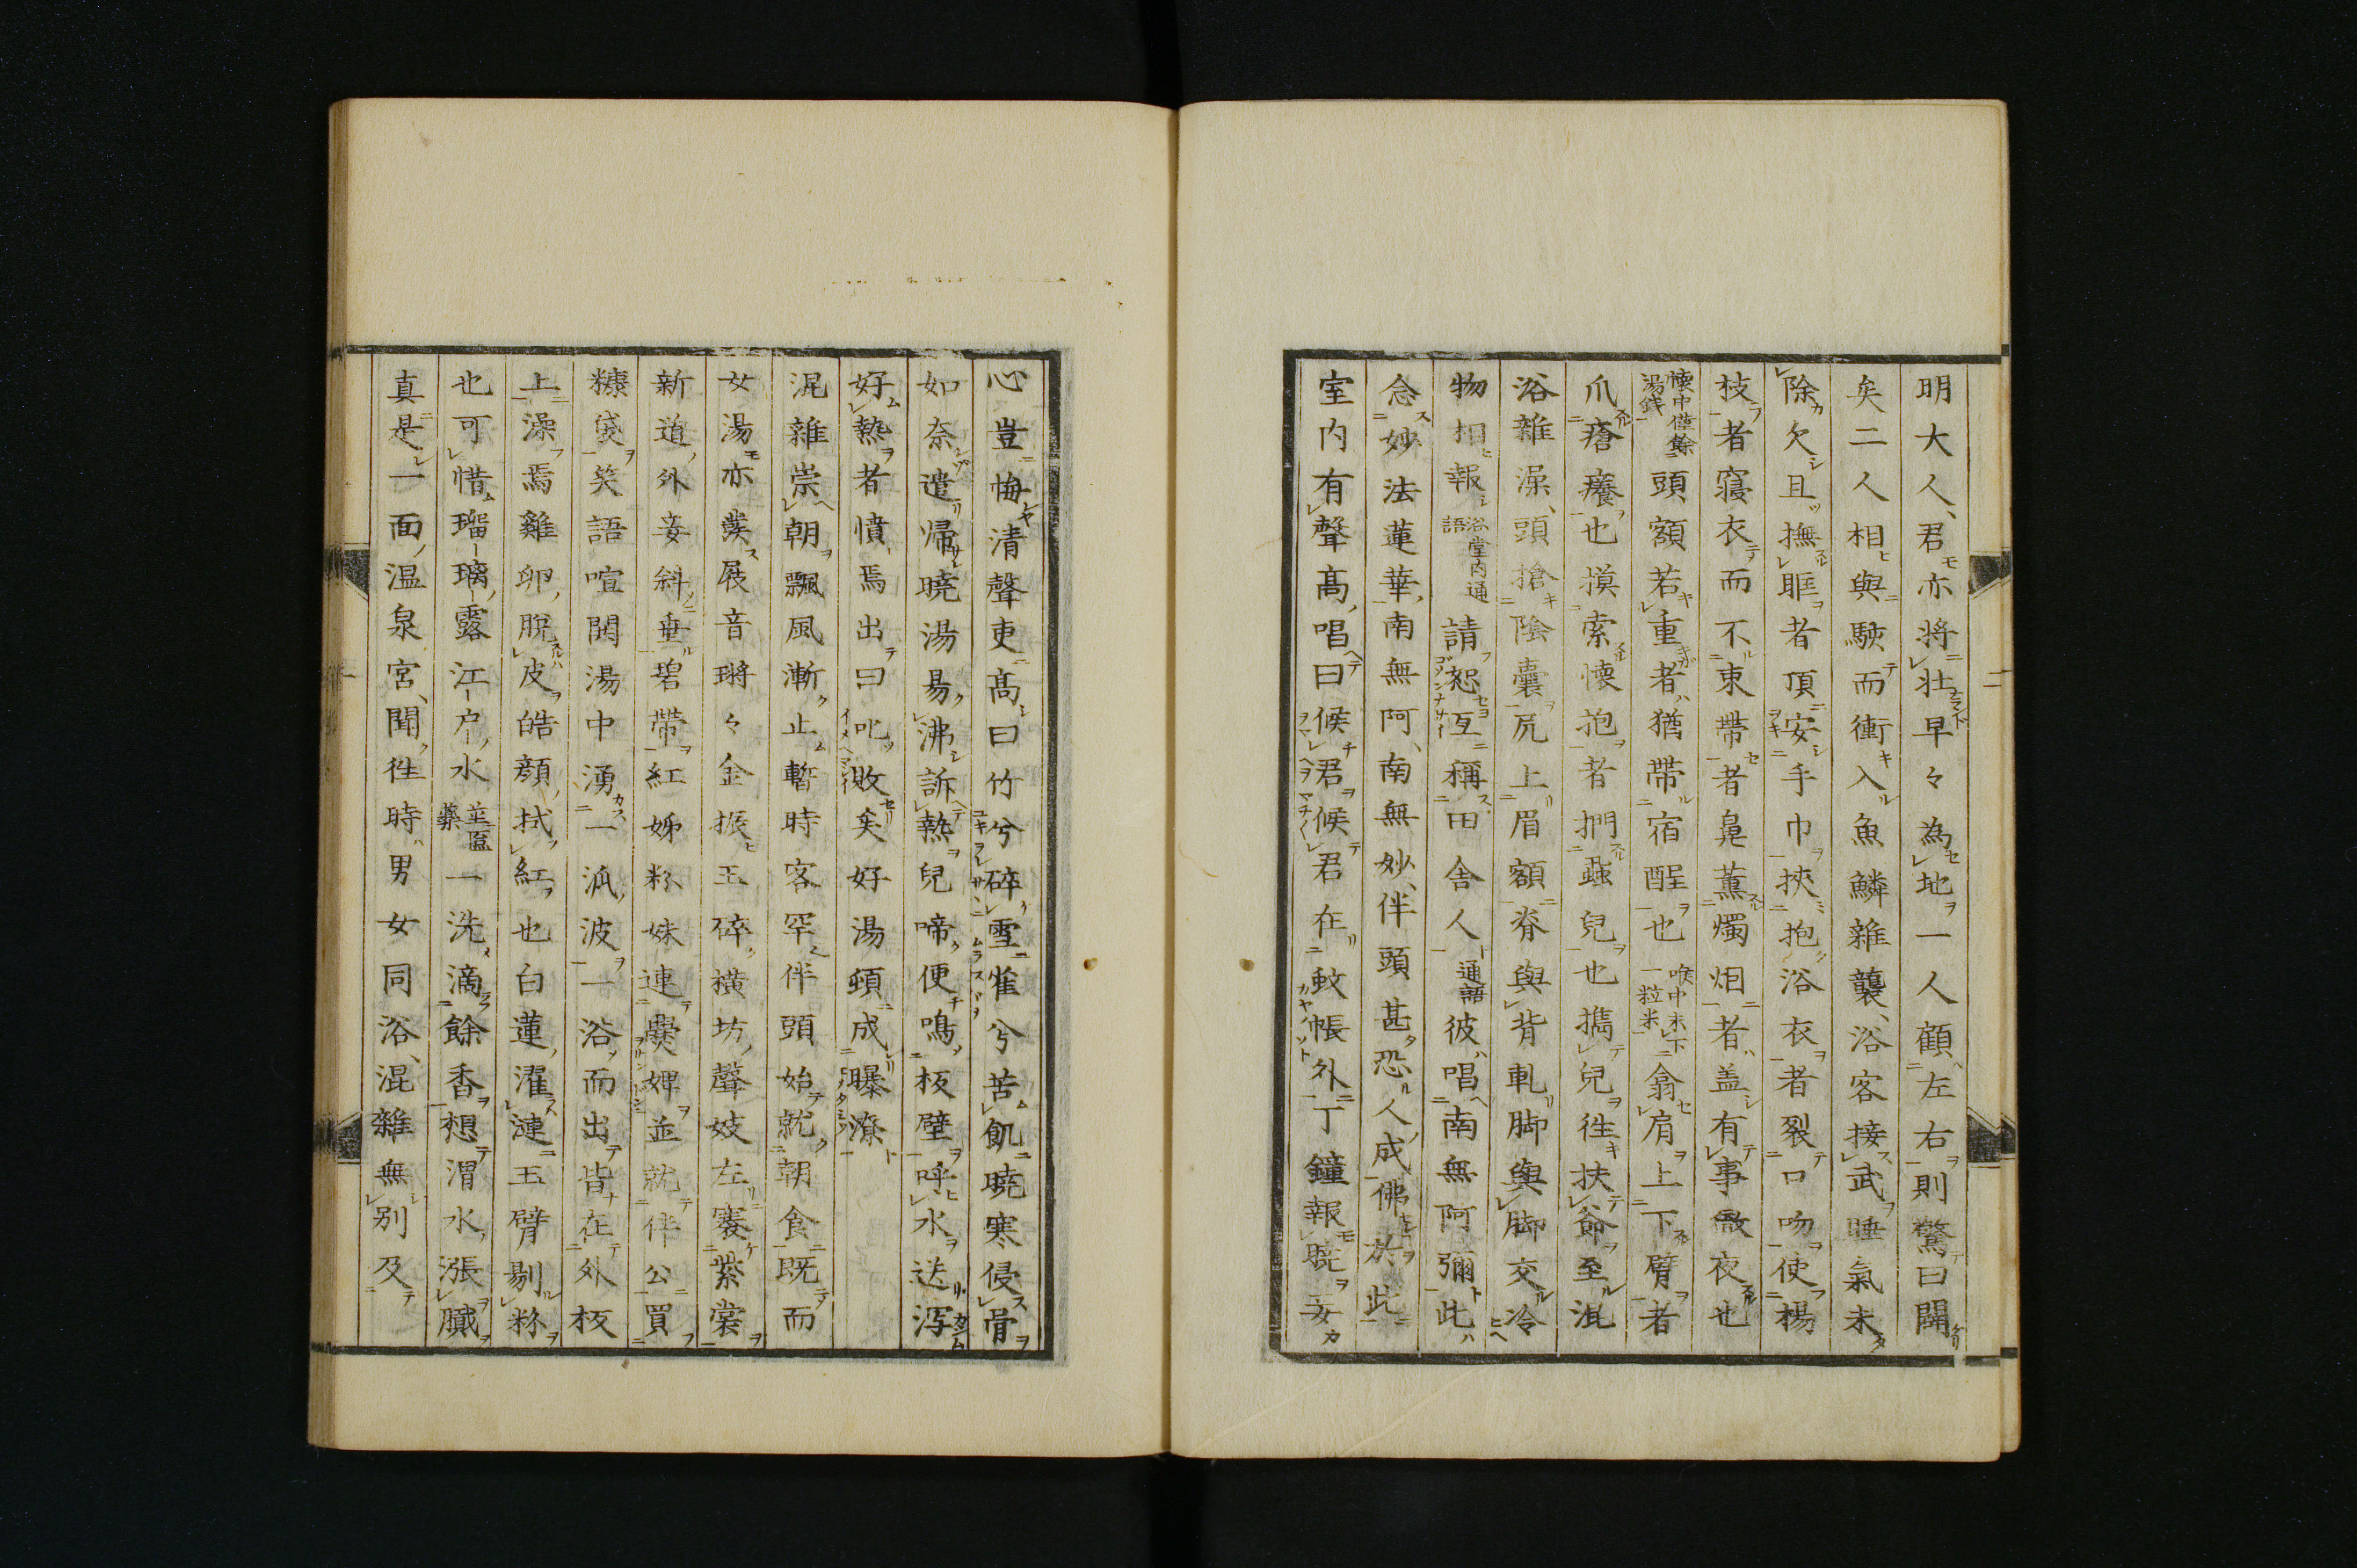 明大人君亦將壮早々為地一人顧左右則驚曰開
矣二人相與駛而衝入魚鱗雜襲浴客接武睡氣未
除欠且撫眶者頂安手巾挾抱浴衣者裂口吻使楊
枝者寢衣而不束帶者鼻薫燭烟者盖有事徹夜也
懐中僅餘湯錢頭額若重者猶帶宿酲也喉中未下一粒米翕肩上下臂者
爪瘡癢也摸索懐抱者捫蝨兒也攜兒徃扶爺至混
浴雜澡頭搶陰囊尻上眉額脊與背軋脚與脚交冷
物相報浴堂内通語請恕互稱田舎人通語彼唱南無阿彌此
念妙法蓮華南無阿南無妙伴頭甚恐人成佛於此
室内有聲髙唱曰候君候君在蚊帳外丁鐘報曉女
心豈悔清聲吏髙曰竹兮碎雪雀兮苦飢曉寒侵骨
如奈遣帰曉湯易沸訴熱兒啼便鳴板壁呼水送瀉
好熱者憤焉出曰叱敗矣好湯頓成曝潦
混雜崇朝飄風漸止暫時客罕伴頭始就朝食既而
女湯亦發展音鏘々金振玉碎横坊聲妓左褰紫裳
新道外妾斜垂碧帶紅姊粉妹連爨婢並就伴公買
糠袋笑語喧閧湯中湧一派波一浴而出皆在外板
上澡焉雞卵脱皮皓顔拭紅也白蓮濯漣玉臂剔粉
也可惜瑠璃露江戸水並匳藥一洗滴餘香想渭水漲膩
真是一面温泉宮聞徃時男女同浴混雜無別及